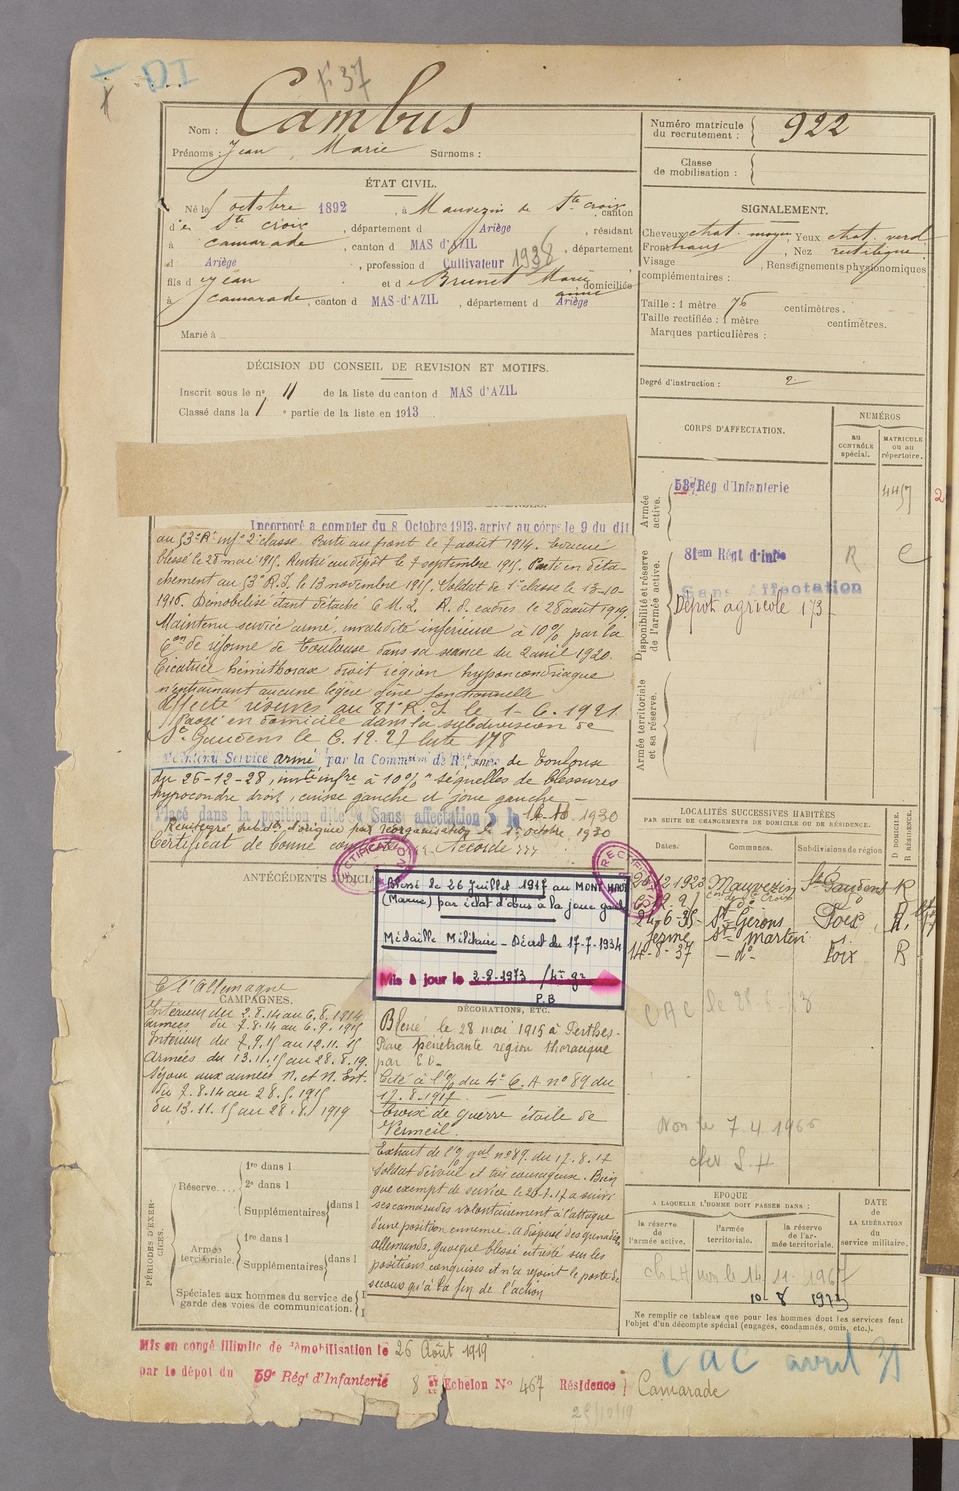 DI
F 37
Nom : Cambus
Prénoms : Jean, Marie Surnoms :
Numéro matricule du recrutement : 922
Classe de mobilisation :
ÉTAT CIVIL.
Né le 5 octobre 1892, à Mauvezin de Ste croix, canton
d e Ste croix, département d Ariège, résidant
à camarade, canton d MAS d'AZIL, département
d Ariège, profession d Cultivateur 1938
fils d e Jean et d e Brunet Marie anne, domiciliés
à camarade, canton d MAS-d'AZIL, département d Ariège
Marié à
SIGNALEMENT.
Cheveux chat. moyen, Yeux chat. verd
Front haut, Nez rectiligne
Visage , Renseignements physionomiques
complémentaires :
Taille : 1 mètre 76 centimètres.
Taille rectifiée : 1 mètre centimètres.
Marques particulières :
Degré d'instruction : 2
DÉCISION DU CONSEIL DE REVISION ET MOTIFS.
Inscrit sous le n° 11 de la liste du canton d MAS d'AZIL
Classé dans la 1 e partie de la liste en 1913
Incorporé a compter du 8 Octobre 1913. arrivé au corps le 9 du dit
au 53e R. inf. 2e classe. Parti au front le 7 août 1914. Evacué
blessé le 28 mai 1915. Rentré au dépôt le 7 septembre 1915. Parti en déta-
chement au 53e R.I. le 13 novembre 1915. Soldat de 1e classe le 13-10-
1916. Démobilisé étant détaché le 28 août 1919.
Maintenu service armé, invalidité inférieure à 10% par la
Con de réforme de Toulouse dans sa séance du 2 avril 1920.
Cicatrice hémithorax droit région hypocondriaque
n'entraînant aucune légère gêne fonctionnelle
Affecté réserves au 81e R.I. le 1-6-1921
Passé en domicile dans la subdivision de
St Gaudens le 6.12.27 liste 178
Maintenu Service armé, par la Commion de Réforme de Toulouse
du 26-12-28, invté infre à 10% séquelles de blessures
hypocondre droit, cuisse gauche et joue gauche
Placé dans la position dite Sans affectation le 1930
d'origine par réorganisation le 1 octobre 1930
Certificat de bonne conduite : Accordé
CORPS D'AFFECTATION.
NUMÉROS
au CONTRÔLE spécial.
MATRICULE ou au répertoire.
Armée active.
53e Rég d'Infanterie
4457
Disponibilité et réserve de l'armée active.
81em Régt d'Infie
R
Sans Affectation
Dépôt agricole 173
Armée territoriale et sa réserve.
LOCALITÉS SUCCESSIVES HABITÉES
PAR SUITE DE CHANGEMENTS DE DOMICILE OU DE RÉSIDENCE.
Dates. Communes. Subdivisions de région
D DOMICILE. R RÉSIDENCE.
12 1923 Mauvezin de Ste Croix St Gaudens R
24-6-35 St Gerons Foix R
ferme St Martin
14-8-37 - do - Foix R
ANTÉCÉDENTS JUDICIAIRES
RECTIFICATION
RECTIFICATION
Blessé le 26 Juillet 1917 au MONT HAUT
(Marne) par éclat d'obus à la joue gauche
Médaille Militaire - Décret du 17-7-1934
Mis à jour le 2-8-1973
P.B
CAMPAGNES.
C. l'Allemagne
Intérieur du 2.8.14 au 6.8.1914
armées du 7.8.14 au 6.9.1915
Intérieur du 7.9.15 au 12.11.15
Armées du 13.11.15 au 28.8.19.
Séjour aux armées N. et N. Est.
du 7.8.14 au 28.5.1915
du 13.11.15 au 28.8.1919
DÉCORATIONS, ETC.
Blessé le 28 mai 1915 à Perthes.
Plaie pénétrante région thoracique
par E.O.
Cité à l'o/ du 4e C.A n° 89 du
17.8.1917.
Croix de guerre étoile de
Vermeil.
Extrait de l'o/ gal n° 89. du 17.8.17
Soldat dévoué et très courageux. Bien
que exempt de service le 26-7-17 a suivi
ses camarades volontairement à l'attaque
d'une position ennemie. a dispersé des grenadiers
allemands, quoique blessé est resté sur les
positions conquises et n'a rejoint le poste de
secours qu'à la fin de l'action
PÉRIODES D'EXERCICES.
Réserve....
1re dans l
2e dans l
Supplémentaires dans l
Armée territoriale.
1re dans l
Supplémentaires dans l
Spéciales aux hommes du service de garde des voies de communication.
CAC le 28-8-
Non le 7.4.1966
EPOQUE
A LAQUELLE L'HOMME DOIT PASSER DANS :
la réserve de l'armée active.
l'armée territoriale.
la réserve de l'armée territoriale.
DATE DE LA LIBÉRATION du service militaire.
le 14 11 1967
10 8 1973
Ne remplir ce tableau que pour les hommes dont les services font
l'objet d'un décompte spécial (engagés, condamnés, omis, etc.).
CAC avril 71
Mis en congé illimité de démobilisation le 26 Août 1919
par le dépot du 59e Régt d'Infanterie 8e Echelon N° 467 Résidence Camarade